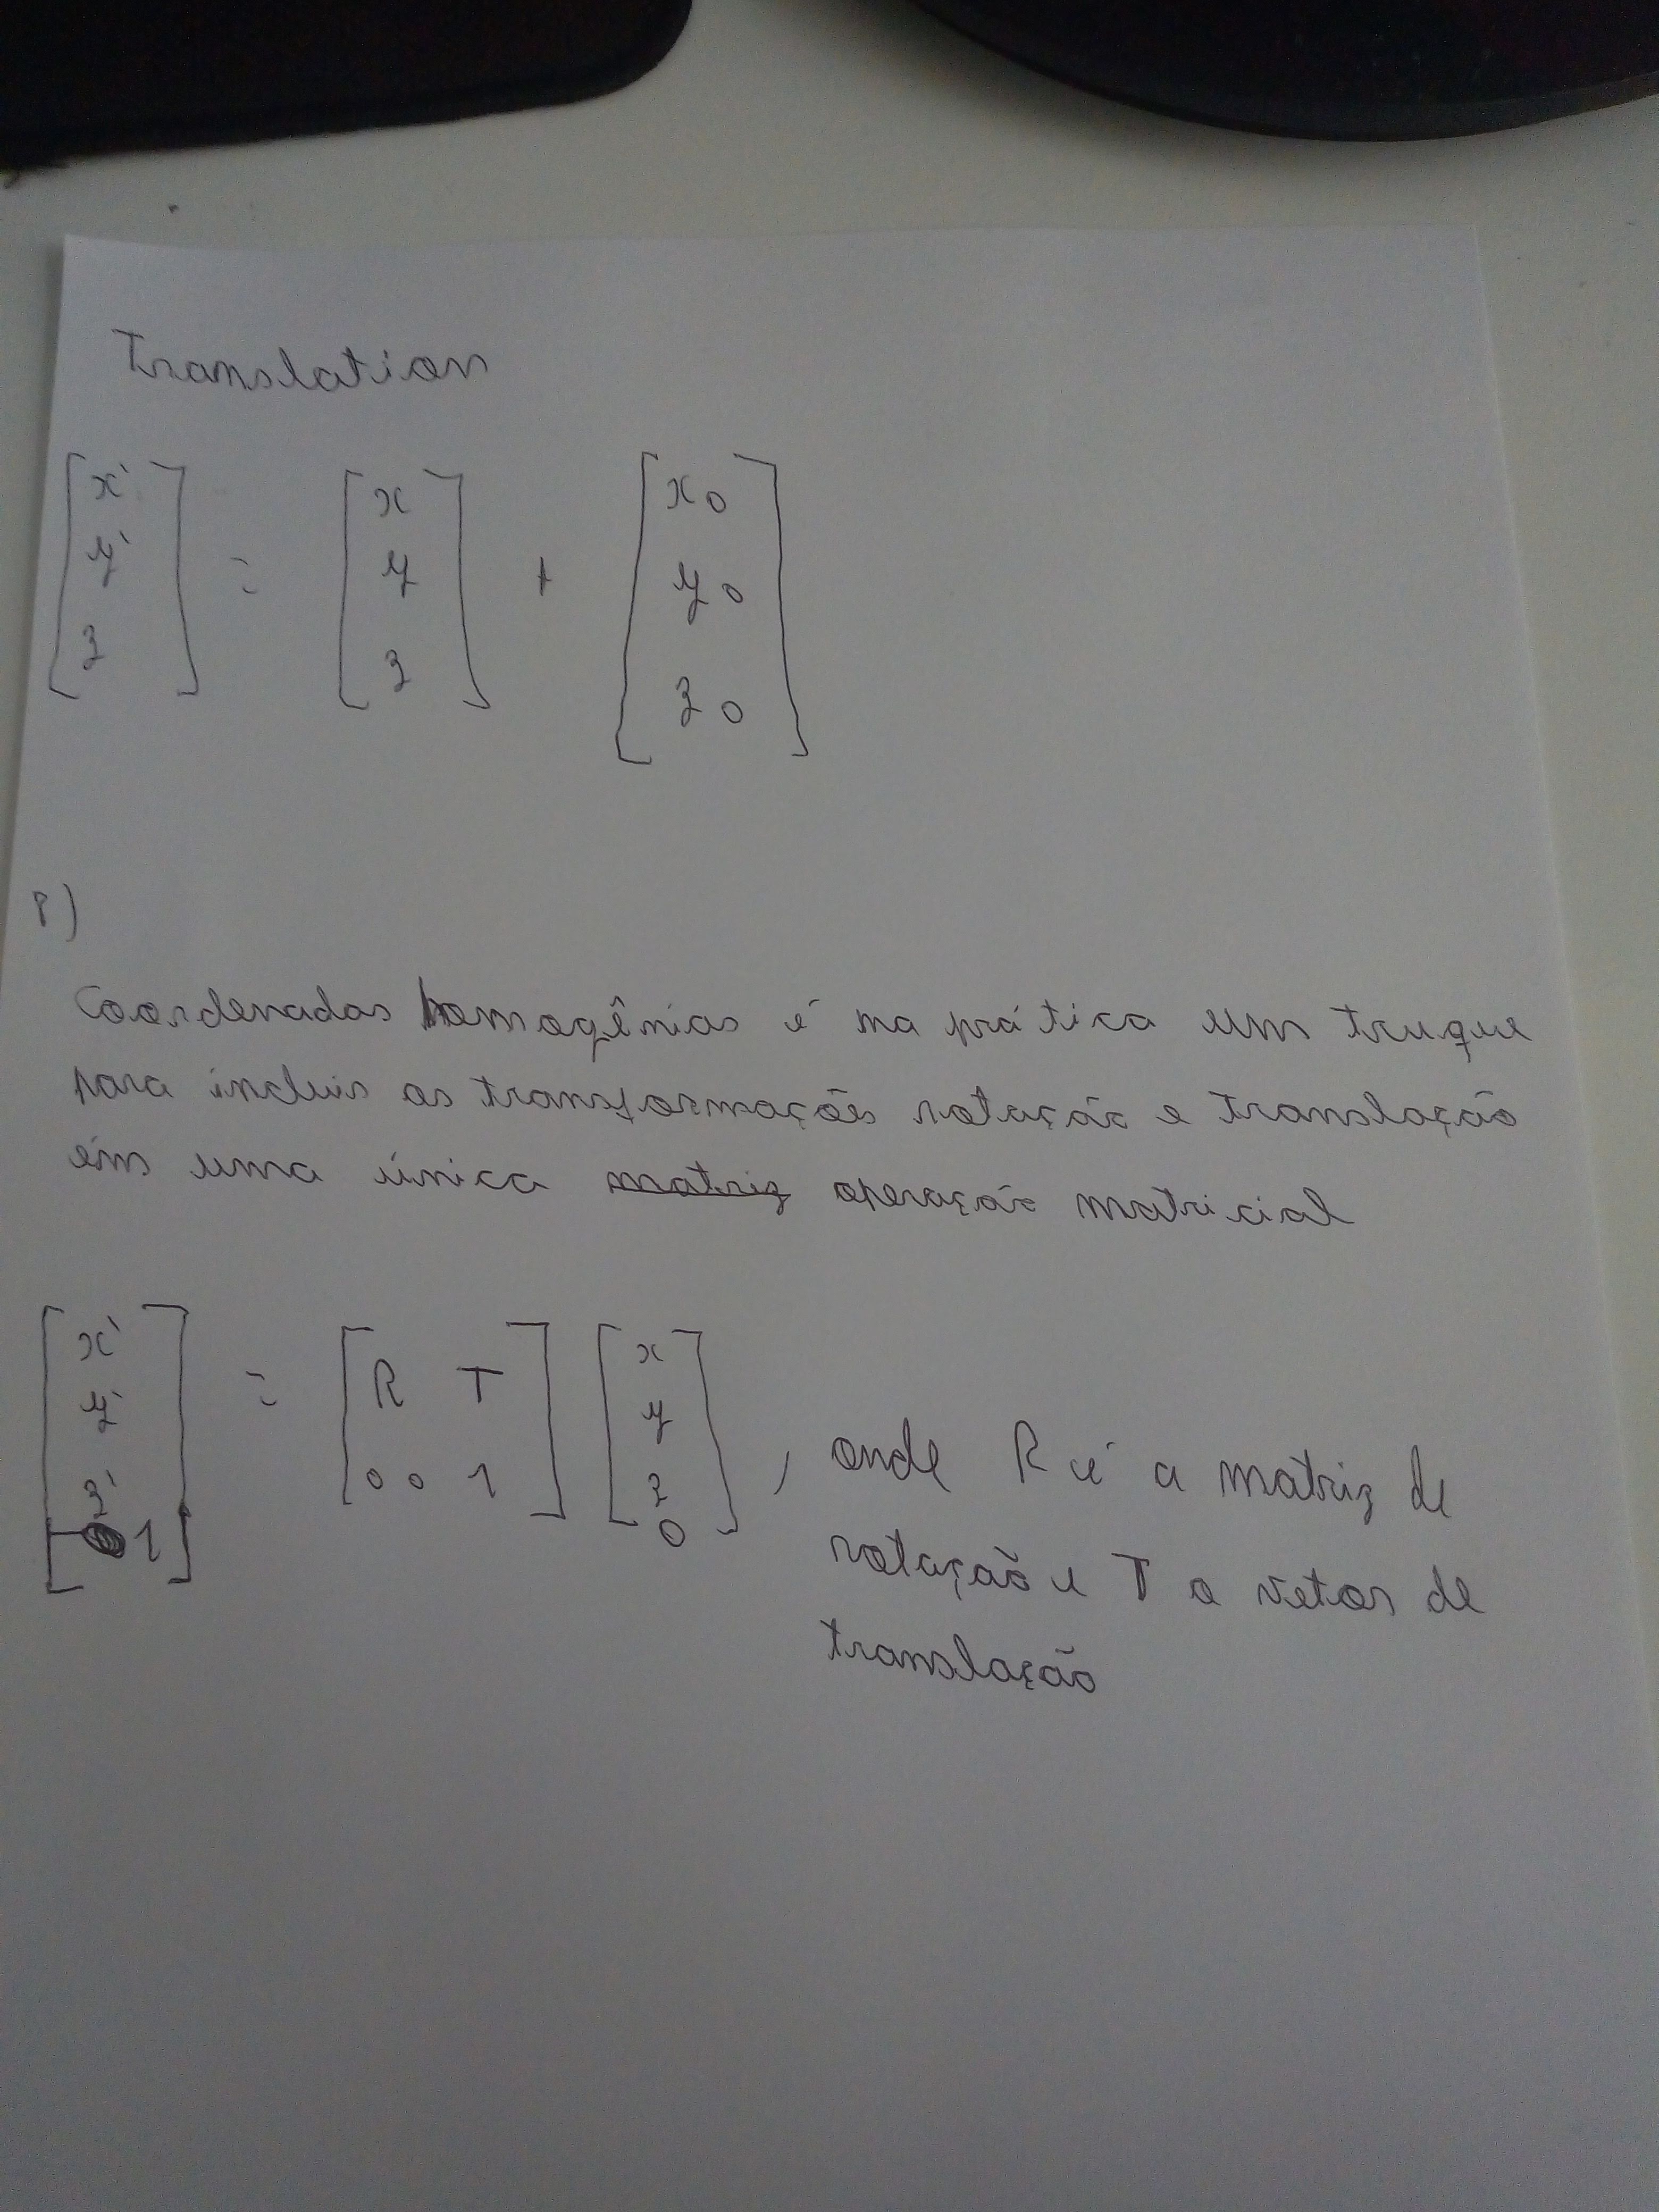 Translation
[x' y' z] = [x y z] + [x0 y0 z0]
8)
Coordenadas homogênias é na prática um truque
para incluir as transformações rotação e translação
em uma única matriz operação matricial
[x' y' z' 1] = [R T 0 0 1] [x y z 0] , onde R é a matriz de
rotação e T o vetor de
translação